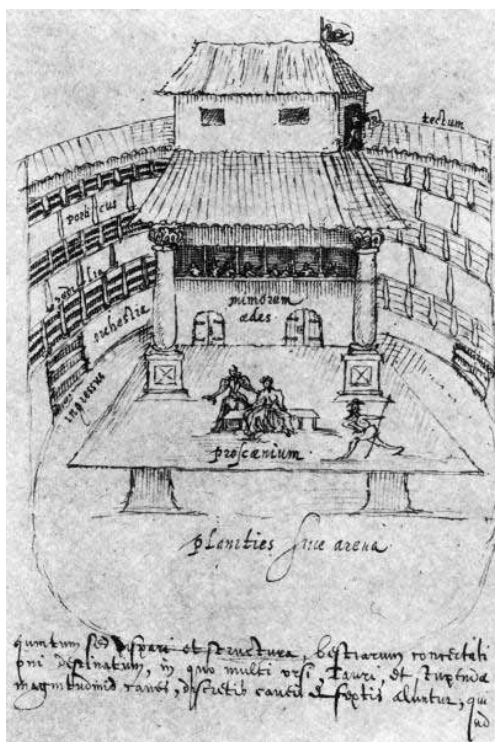 tectum
porticus
sedilia
orchestra
ingressus
mimorum
ædes
proscænium
planities siue arena
quintum sed dispari et structura, bestiarum concertati
oni destinatum, in quo multi ursi, Tauri, et stupendæ
magnitudinis canes, discretis caueis et septis aluntur, qui
ad